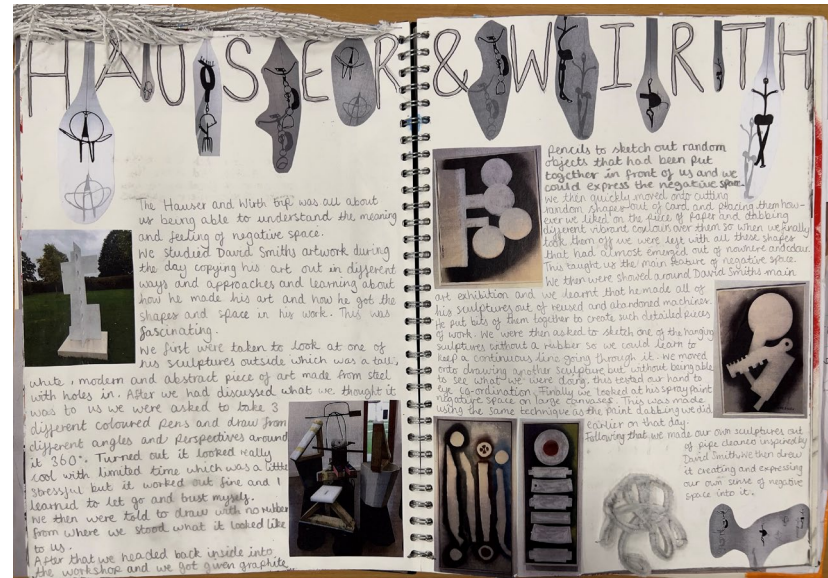 HAUSER & WIRTH
The Hauser and Wirth trip was all about
us being able to understand the meaning
and feeling of negative space.
We studied David Smiths artwork during
the day copying his art out in different
ways and approaches and learning about
how he made his art and how he got the
shapes and space in his work. This was
fascinating.
We first were taken to look at one of
his sculptures outside which was a tall,
white, modern and abstract piece of art made from steel
with holes in. After we had discussed what we thought it
was to us we were asked to take 3
different coloured pens and draw from
different angles and perspectives around
it 360°. Turned out it looked really
cool with limited time which was a little
stressful but it worked out fine and I
learned to let go and trust myself.
We then were told to draw with no rubber
from where we stood what it looked like
to us.
After that we headed back inside into
the workshop and we got given graphite
pencils to sketch out random
objects that had been put
together in front of us and we
could express the negative space.
We then quickly moved onto cutting
random shapes out of card and placing them how-
ever we liked on the piece of paper and dabbing
different vibrant colours over them so when we finally
took them off we were left with all these shapes
that had almost emerged out of nowhere and colour.
This taught us the main feature of negative space.
We then were showed around David Smiths main
art exhibition and we learnt that he made all of
his sculptures out of reused and abandoned machinery.
He put bits of them together to create such detailed pieces
of work. We were then asked to sketch one of the hanging
sculptures without a rubber so we could learn to
keep a continuous line going through it. We moved
onto drawing another sculpture but without being able
to see what we were doing, this tested our hand to
eye co-ordination. Finally we looked at his spray paint
negative space on large canvases. This was made
using the same technique as the paint dabbing we did
earlier on that day.
Following that we made our own sculptures out
of pipe cleaners inspired by
David Smith. We then drew
it creating and expressing
our own sense of negative
space into it.